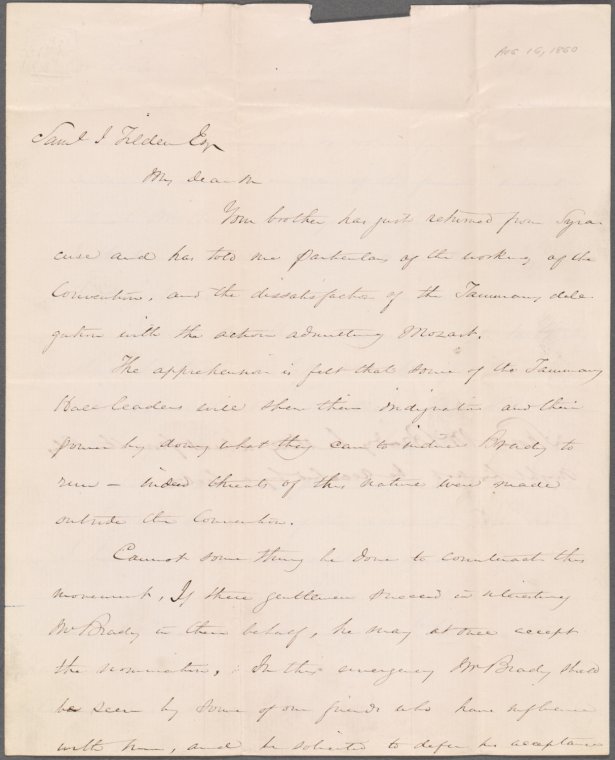 Aug 16, 1860
Saml J Tilden Esq
My dear Sir
Your brother has just returned from Syra
cuse and has told me particulars of the working of the
Convention, and the dissatisfaction of the Tammany dele
gation with the action admitting Mozart.
The apprehension is felt that some of the Tammany
Hall leaders will show their indignation and their
power by doing what they can to induce Brady to
run – indeed threats of this nature were made
outside the Convention.
Cannot some thing be done to counteract this
movement, If these gentlemen succeed in interesting
Mr Brady in their behalf, he may at once accept
the nomination. In this emergency Mr Brady should
be seen by some of our friends who have influence
with him, and be solicited to defer his acceptance